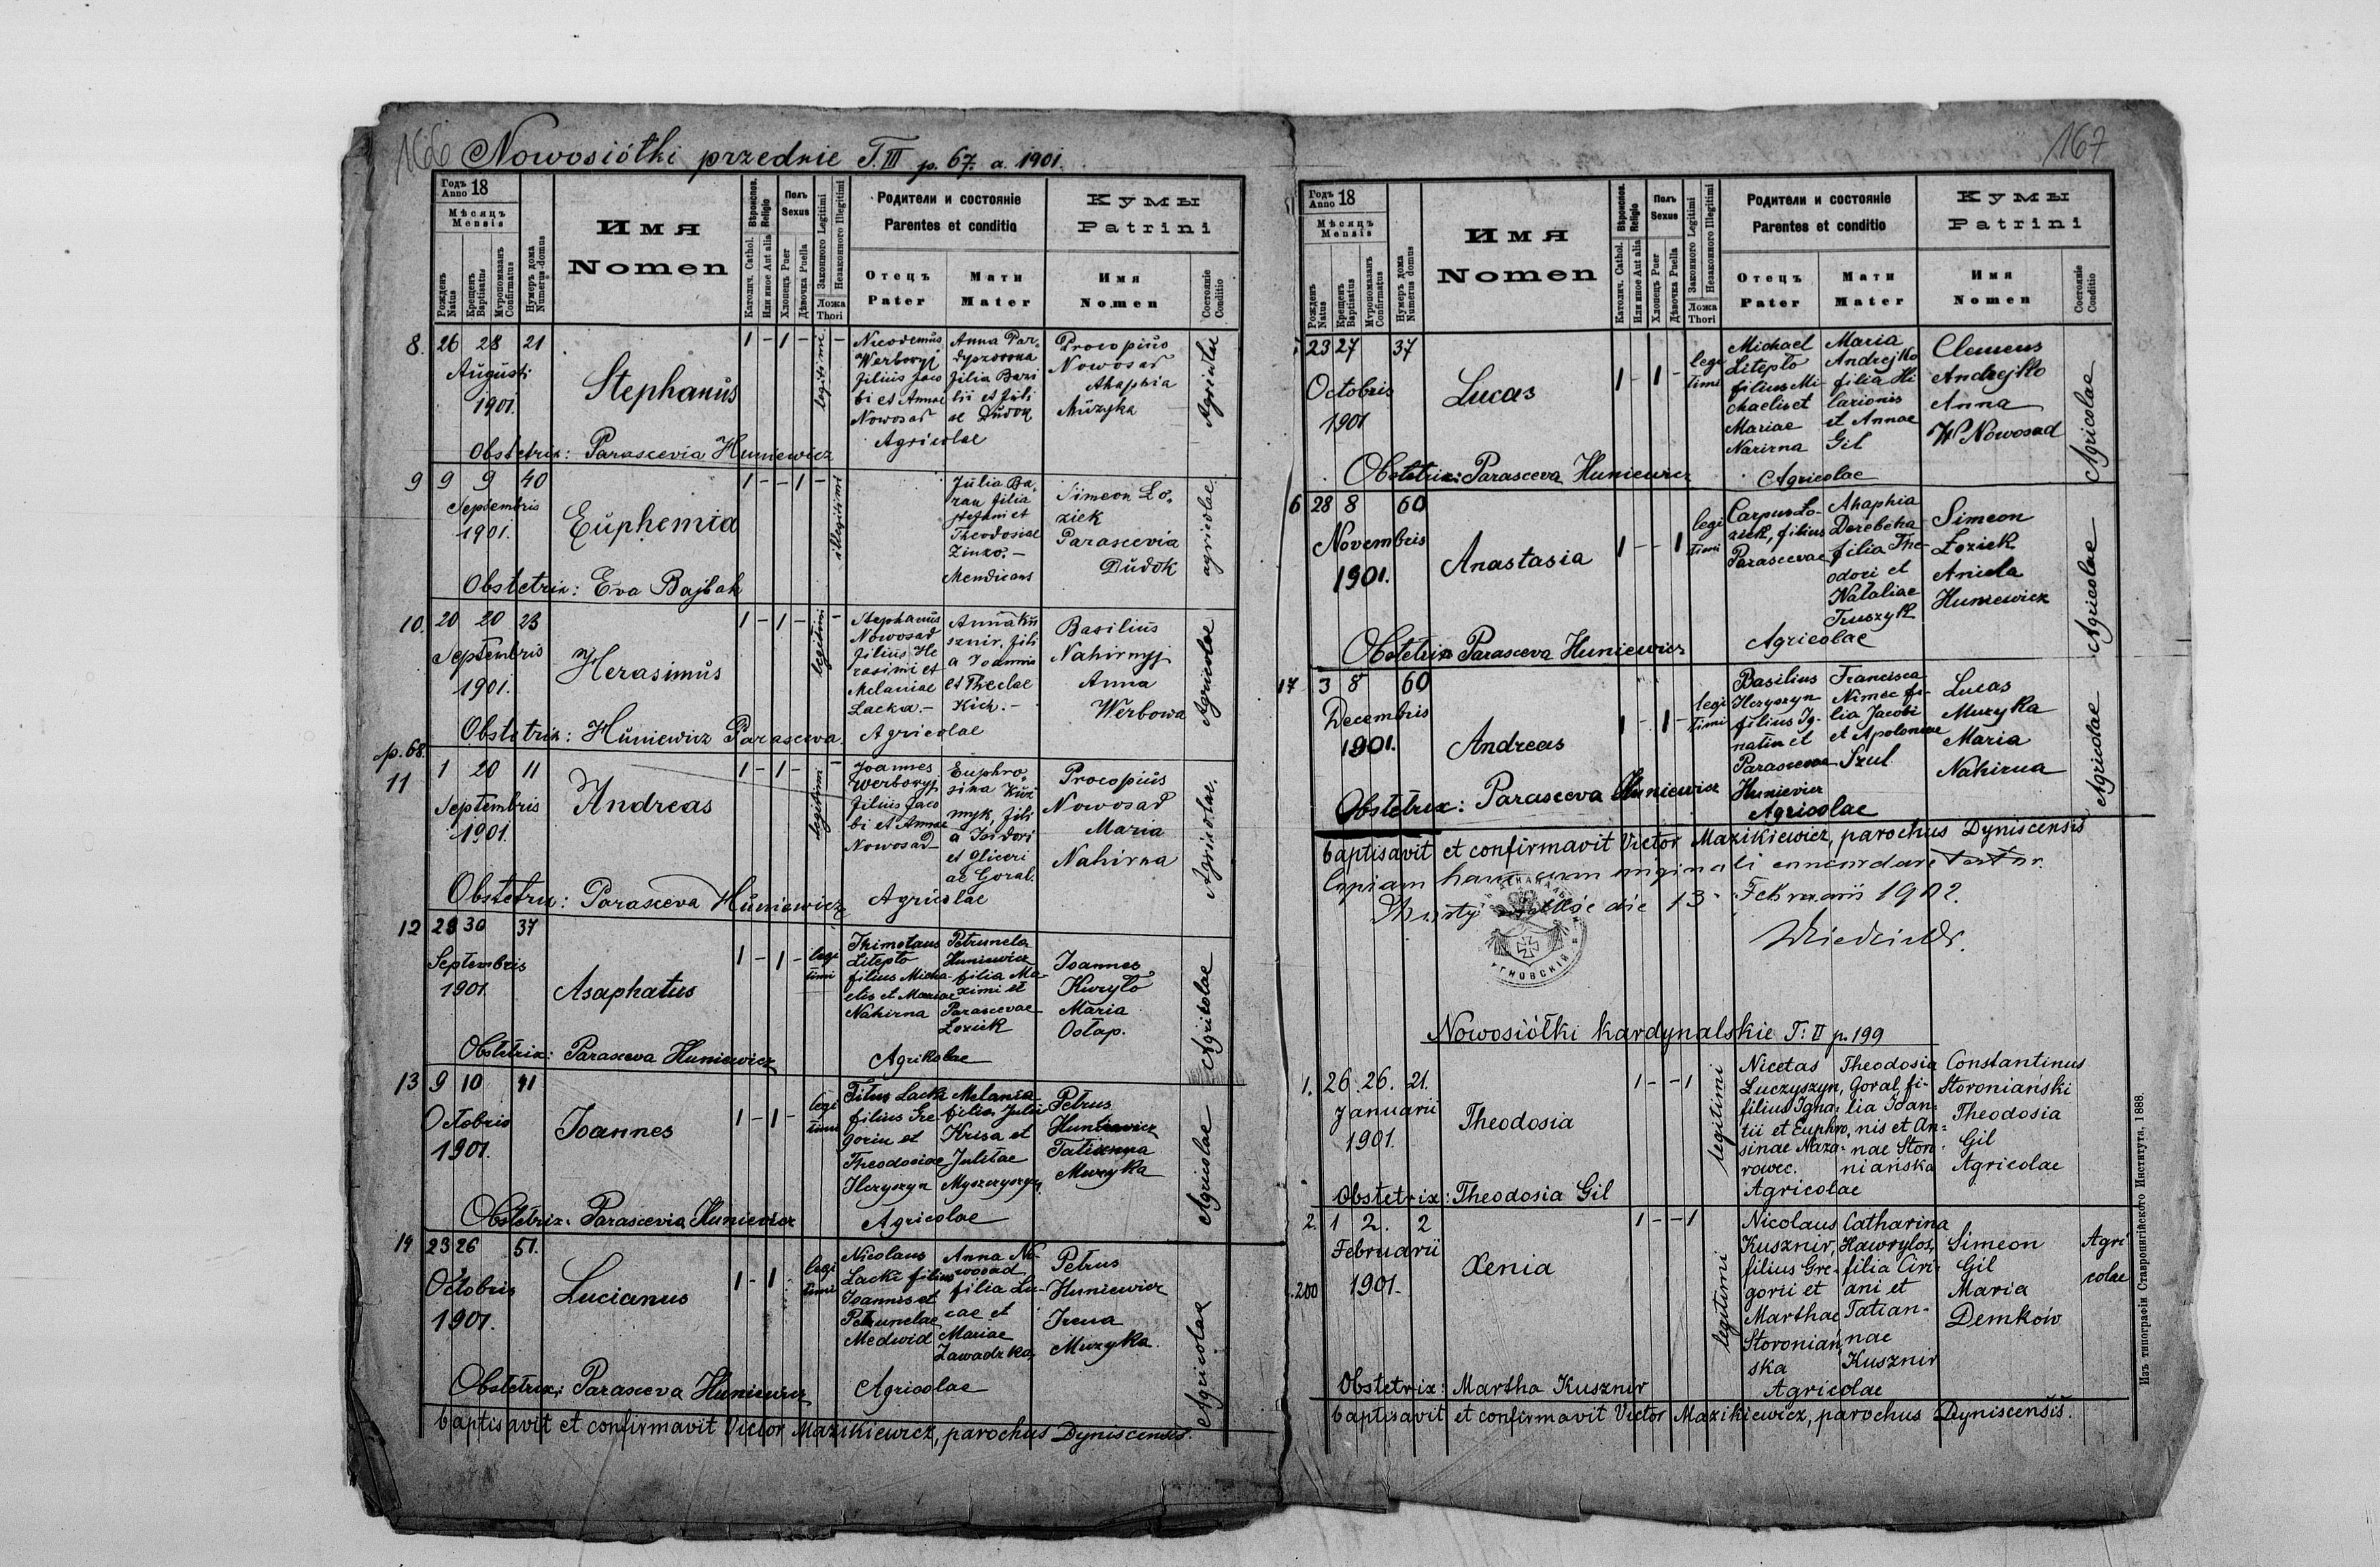 166 Nowosiółki przednie T. III p. 67. a. 1901.
Годъ Anno 18
Мѣсяцъ Mensis
Рожденъ Natus
Крещенъ Baptisatus
Мѵропомазанъ Confirmatus
Нумеръ дома Numerus domus
Имя Nomen
Вѣроиспов. Religio
Католич. Cathol.
Или иное Aut alia
Полъ Sexus
Хлопецъ Puer
Дѣвочка Puella
Законного Legitimi
Незаконного Illegitimi
Ложа Thori
Родители и состоянiе
Parentes et conditio
Отецъ Pater
Мати Mater
Кумы
Patrini
Имя Nomen
Состоянiе Conditio
8. 26 28 21
Augusti
1901.
Stephanus
1 - 1 - legitimi -
Nicodemus
Werbowyj
filius Jaco
bi et Annae
Nowosad
Anna Par-
dyszowna
filia Basi
lii et Juli
ae Dudok
Agricolae
Procopius
Nowosad
Ahaphia
Muzyka
Agricolae
Obstetrix: Parascevia Huniewicz
9 9 9 40
Septembris
1901.
Euphemia
1 - - 1 - illegitimi
Julia Ba-
ran filia
Stefani et
Theodosiae
Zinko. -
Mendicans
Simeon Ło-
ziek
Parascevia
Dudok
agricolae
Obstetrix: Eva Bajbak
10. 20 20 23
Septembris
1901.
Herasimus
1 - 1 - legitimi -
Stephanus
Nowosad
filius He
rasimi et
Melaniae
Lacka. -
Anna Ku
sznir, fili
a Joannis
et Theclae
Kich. -
Agricolae
Basilius
Nahirnyj
Anna
Werbowa
Agricolae
Obstetrix: Huniewicz Parasceva.
p. 68.
11 1 20 11
Septembris
1901.
Andreas
1 - 1 - legitimi -
Joannes
Werbowyj
filius Jaco
bi et Annae
Nowosad
Euphro-
sina Kuź
myk, fili
a Isidori
et Gliceri
ae Goral.
Agricolae
Procopius
Nowosad
Maria
Nahirna
Agricolae.
Obstetrix: Parasceva Huniewicz
12 28 30 37
Septembris
1901.
Asaphatus
1 - 1 - legi
timi
Thimoteus
Litepło
filius Micha-
elis et Mariae
Nahirna
Petrunela
Huniewicz
filia Ma-
ximi et
Parascevae
Łoziek
Agrikolae
Joannes
Kuryło
Maria
Ostap.
Agricolae
Obstetrix: Parasceva Huniewicz
13 9 10 41
Octobris
1901.
Joannes
1 - 1 - legi
timi
Titus Lack
filius Gre
gorii et
Theodosiae
Heryszyn
Melania
filia Julii
Krisa et
Julitae
Agricolae
Petrus
Huniewicz
Tatianna
Muzyka
Agricolae
Obstetrix. Parascevia Huniewicz
14 23 26 51.
Octobris
1901.
Lucianus
1 - 1 - legi
timi
Nicolaus
Lacki filius
Joannis et
Petrunelae
Medwid
Anna No-
wosad
filia Lu-
cae et
Mariae
Zawadzka,
Agricolae
Petrus
Huniewicz
Irena
Muzyka.
Agricolae
Obstetrix: Parasceva Huniewicz
baptisavit et confirmavit Victor Mazikiewicz, parochus Dyniscensis.
167
Годъ Anno 18
Мѣсяцъ Mensis
Рожденъ Natus
Крещенъ Baptisatus
Мѵропомазанъ Confirmatus
Нумеръ дома Numerus domus
Имя Nomen
Вѣроиспов. Religio
Католич. Cathol.
Или иное Aut alia
Полъ Sexus
Хлопецъ Puer
Дѣвочка Puella
Законного Legitimi
Незаконного Illegitimi
Ложа Thori
Родители и состоянiе
Parentes et conditio
Отецъ Pater
Мати Mater
Кумы
Patrini
Имя Nomen
Состоянiе Conditio
23 27 37
Octobris
1901
Lucas
1 - 1 - legi
timi
Michael
Litepło
filius Mi-
chaelis et
Mariae
Narirna
Maria
Andrejko
filia Hi
larionis
et Annae
Gil
Agricolae
Clemens
Andrejko
Anna
W. Nowosad
Agricolae
Obstetrix: Parasceva Huniewicz
6 28 8 60
Novembris
1901.
Anastasia
1 - - 1 legi
timi
Carpus Ło-
ziek, filius
Parascevae
Ahaphia
Derebcha
filia The-
odori et
Nataliae
Truszyk
Agricolae
Simeon
Łoziek
Aniela
Huniewicz
Agricolae
Obstetrix Parasceva Huniewicz
17 3 8 60
Decembris
1901.
Andreas
1 - 1 - legi
timi
Basilius
Heryszyn
filius Ig-
natii et
Parascevae
Huniewicz
Francisca
Nimec fi-
lia Jacobi
et Apoloniae
Szul.
Agricolae
Lucas
Muzyka
Maria
Nahirna
Agricolae
Obstetrix: Parasceva Huniewicz
baptisavit et confirmavit Victor Mazikiewicz, parochus Dyniscensis
Copiam hanc cum originali concordare testor.
die 13 Februarii 1902.
Nowosiółki kardynalskie T: II p. 199
1. 26. 26. 21.
Januarii
1901.
Theodosia
1 - - 1 legitimi
Nicetas
Łuczyszyn,
filius Igna-
tii et Euphro-
sinae Naza-
rowec.
Theodosia
Goral, fi-
lia Joan-
nis et An-
nae Storo-
niańska
Agricolae
Constantinus
Storoniański
Theodosia
Gil
Agricolae
Obstetrix: Theodosia Gil
2. 1 2. 2
Februarii
.200 1901.
Xenia
1 - - 1 legitimi
Nicolaus
Kusznir,
filius Gre-
gorii et
Marthae
Storoniań-
ska
Catharina
Hawrylos,
filia Ciri-
ani et
Tatian-
nae
Kusznir
Agricolae
Simeon
Gil
Maria
Demków
Agri
colae
Obstetrix: Martha Kusznir
baptisavit et confirmavit Victor Mazikiewicz, parochus Dyniscensis.
Изъ типографiи Ставропигiйского Института, 1888.